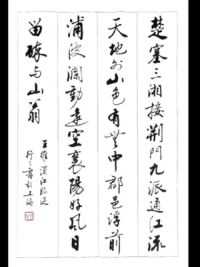 楚塞三湘接荆門九派通江流
天地外山色有無中郡邑浮前
浦波瀾動遠空襄陽好風日
留醉与山翁
王維漢江臨泛